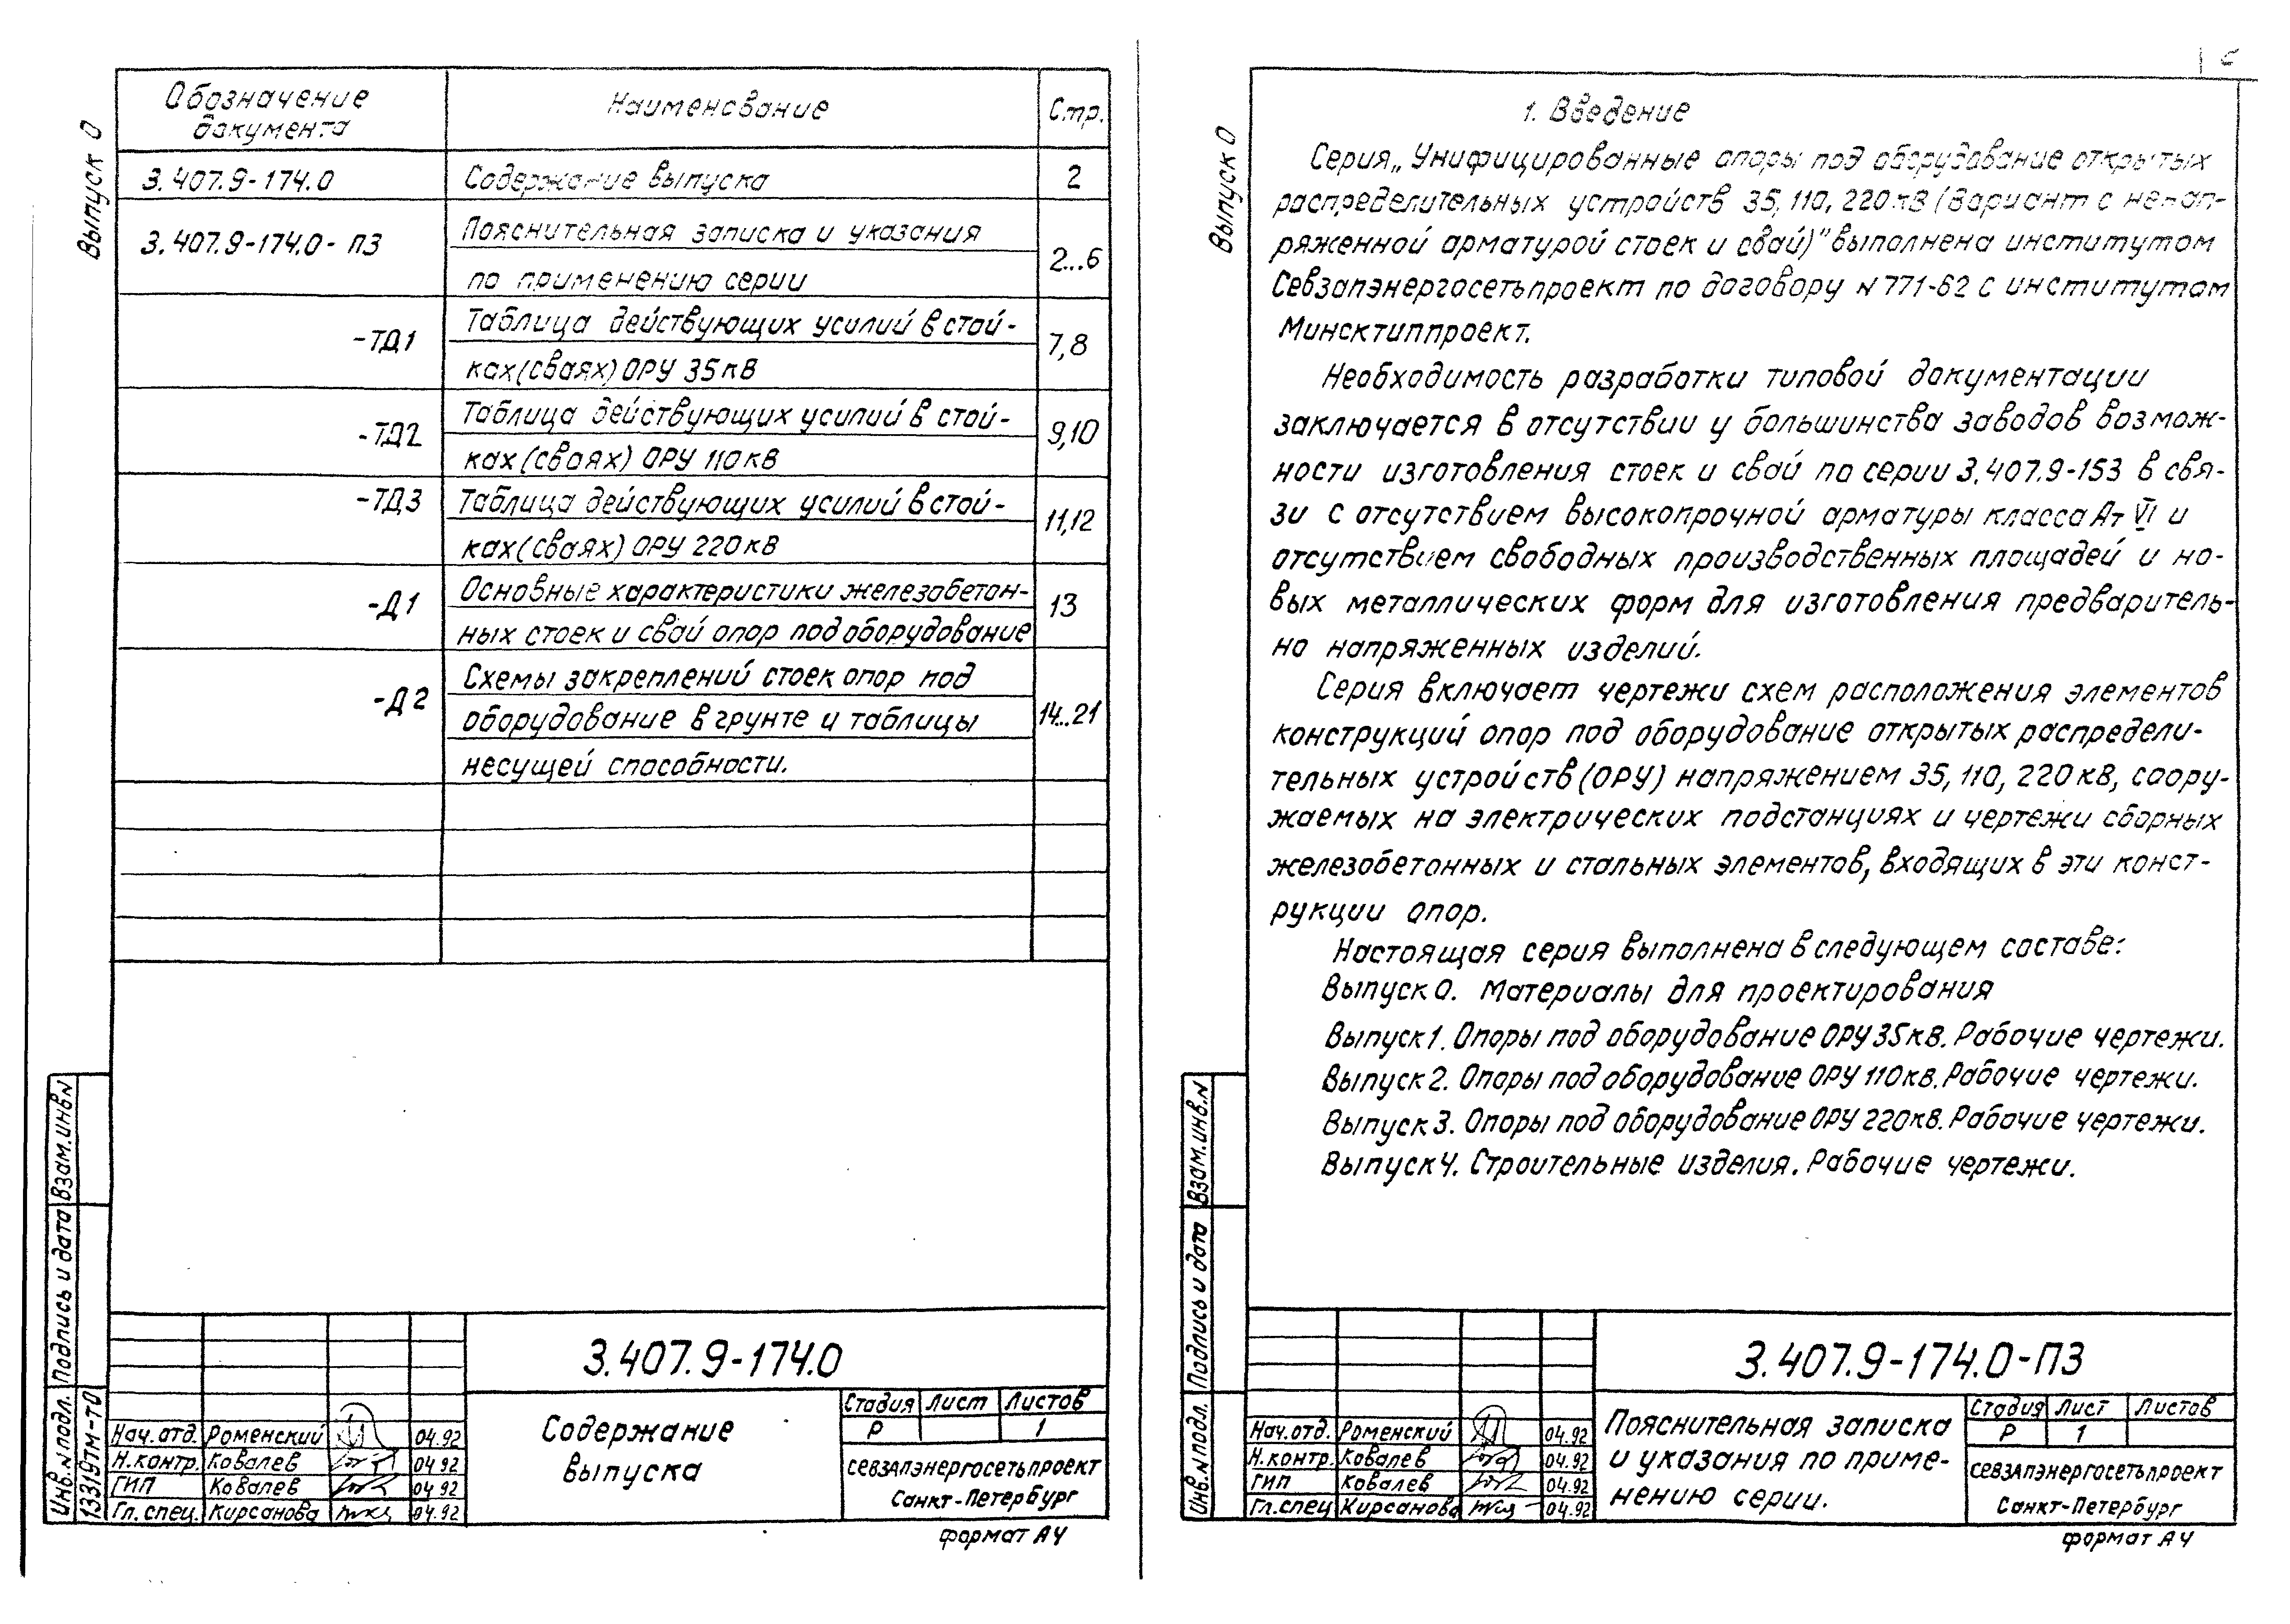 Выпуск 0
Обозначение документа | Наименование | Стр.
3.407.9-174.0 | Содержание выпуска | 2
3.407.9-174.0-ПЗ | Пояснительная записка и указания
по применению серии | 2...6
-ТД1 | Таблица действующих усилий в стой-
ках (сваях) ОРУ 35 кВ | 7,8
-ТД2 | Таблица действующих усилий в стой-
ках (сваях) ОРУ 110 кВ | 9,10
-ТД3 | Таблица действующих усилий в стой-
ках (сваях) ОРУ 220 кВ | 11,12
-Д1 | Основные характеристики железобетон-
ных стоек и свай опор под оборудование | 13
-Д2 | Схемы закреплений стоек опор под
оборудование в грунте и таблицы
несущей способности. | 14...21
Взам.инв.N
Подпись и дата
Инв.N подл.
13319тм-т0
3.407.9-174.0
Содержание
выпуска
Стадия Лист Листов
Р 1
Нач.отд. Роменский 04.92
Н.контр. Ковалев 04.92
ГИП Ковалев 04.92
Гл.спец. Кирсанова 04.92
СЕВЗАПЭНЕРГОСЕТЬПРОЕКТ
Санкт-Петербург
формат А4
Выпуск 0
1. Введение
Серия „Унифицированные опоры под оборудование открытых
распределительных устройств 35, 110, 220 кВ (Вариант с ненап-
ряженной арматурой стоек и свай)" выполнена институтом
Севзапэнергосетьпроект по договору N 771-62 с институтом
Минсктиппроект.
Необходимость разработки типовой документации
заключается в отсутствии у большинства заводов возмож-
ности изготовления стоек и свай по серии 3.407.9-153 в свя-
зи с отсутствием высокопрочной арматуры класса Ат VI и
отсутствием свободных производственных площадей и но-
вых металлических форм для изготовления предваритель-
но напряженных изделий.
Серия включает чертежи схем расположения элементов
конструкций опор под оборудование открытых распредели-
тельных устройств (ОРУ) напряжением 35, 110, 220 кВ, соору-
жаемых на электрических подстанциях и чертежи сборных
железобетонных и стальных элементов, входящих в эти конст-
рукции опор.
Настоящая серия выполнена в следующем составе:
Выпуск 0. Материалы для проектирования
Выпуск 1. Опоры под оборудование ОРУ 35 кВ. Рабочие чертежи.
Выпуск 2. Опоры под оборудование ОРУ 110 кВ. Рабочие чертежи.
Выпуск 3. Опоры под оборудование ОРУ 220 кВ. Рабочие чертежи.
Выпуск 4. Строительные изделия. Рабочие чертежи.
Взам.инв.N
Подпись и дата
Инв.N подл.
3.407.9-174.0-ПЗ
Пояснительная записка
и указания по приме-
нению серии.
Стадия Лист Листов
Р 1
Нач.отд. Роменский 04.92
Н.контр. Ковалев 04.92
ГИП Ковалев 04.92
Гл.спец Кирсанова 04.92
СЕВЗАПЭНЕРГОСЕТЬПРОЕКТ
Санкт-Петербург
формат А4